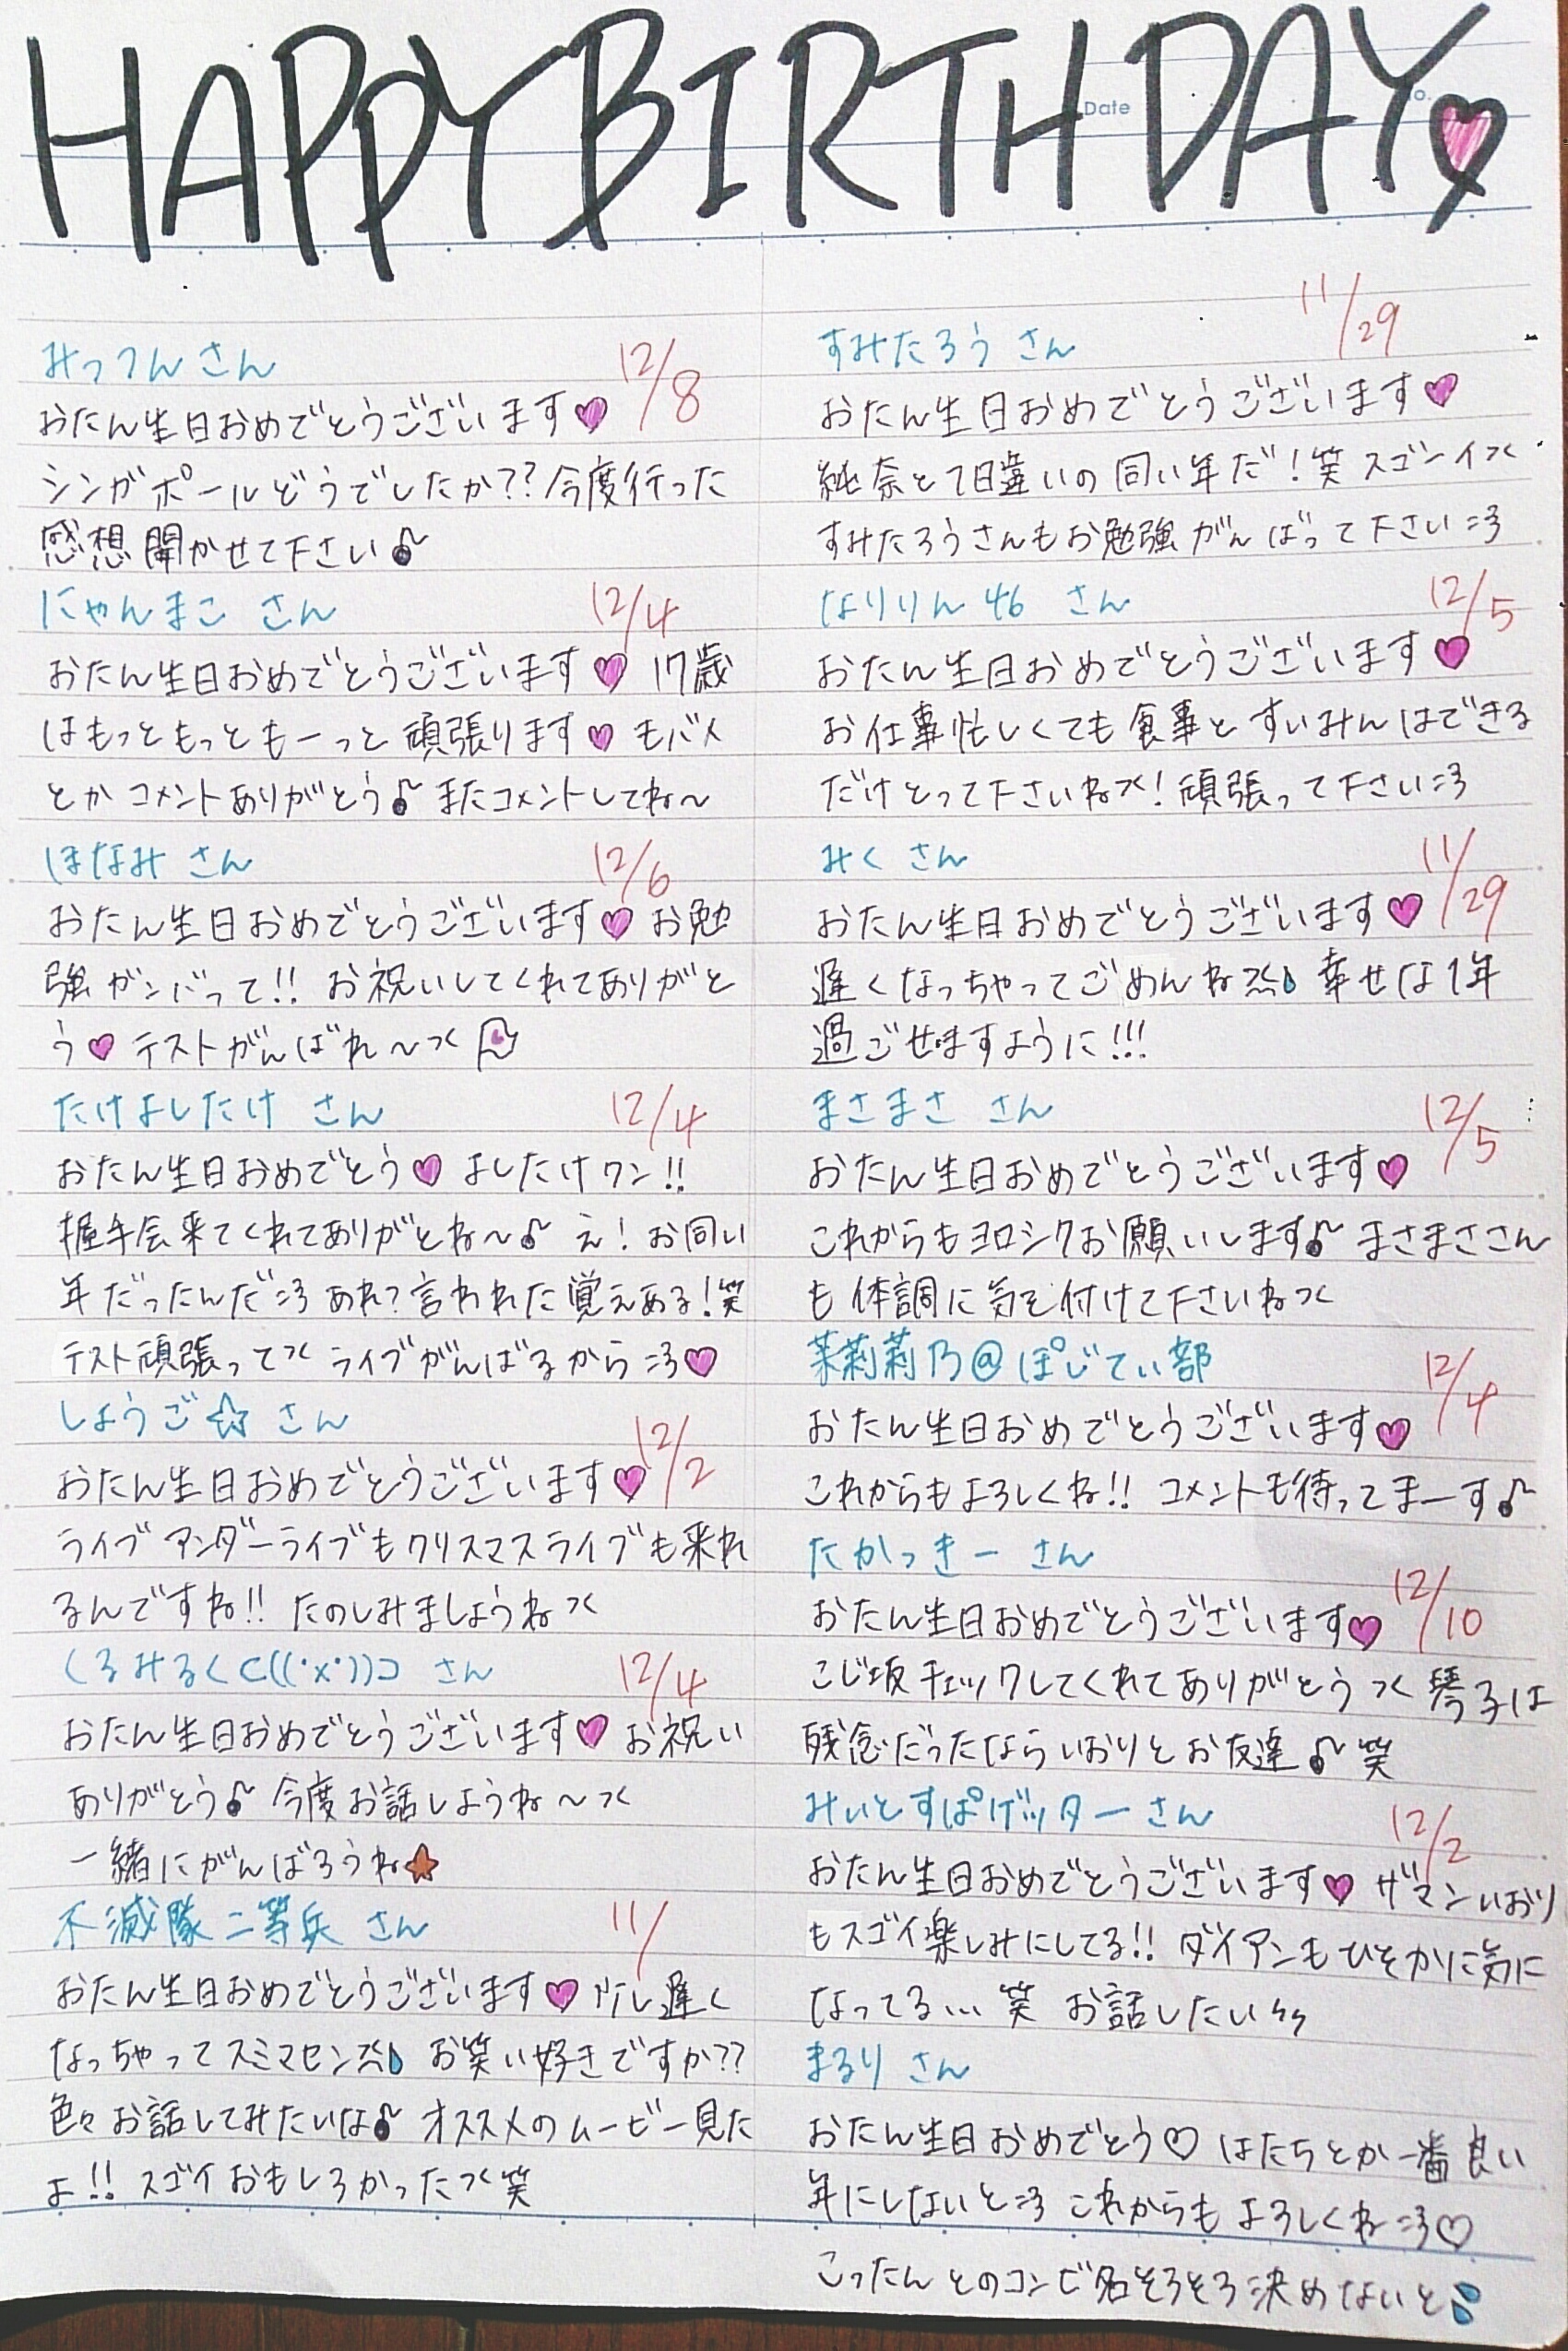 HAPPY BIRTHDAY
Date
No.
みってんさん 12/8
おたん生日おめでとうございます♥
シンガポールどうでしたか??今度行った
感想聞かせて下さい♪
にゃんまこ さん 12/4
おたん生日おめでとうございます♥ 17歳
はもっともっともーっと頑張ります♥ モバメ
とか コメントありがとう♪ またコメントしてね〜
ほなみ さん 12/6
おたん生日おめでとうございます♥ お勉
強ガンバって!! お祝いしてくれてありがと
う♥ テストがんばれ〜
たけよしたけ さん 12/4
おたん生日おめでとう♥ よしたけワン!!
握手会来てくれてありがとね〜♪ え! お同い
年だったんだ あれ?言われた覚えある!笑
テスト頑張って ライブがんばるから♥
しょうご☆ さん 12/2
おたん生日おめでとうございます♥
ライブ アンダーライブもクリスマスライブも来れ
るんですね!! たのしみましょうね
くるみるく⊂((・x・))⊃ さん 12/4
おたん生日おめでとうございます♥ お祝い
ありがとう♪ 今度お話しようね〜
一緒にがんばろうね★
不滅隊二等兵 さん 11/
おたん生日おめでとうございます♥ 少し遅く
なっちゃってスミマセン お笑い好きですか??
色々お話してみたいな♪ オススメのムービー見た
よ!! スゴイおもしろかった 笑
すみたろう さん 11/29
おたん生日おめでとうございます♥
純奈と1日違いの同い年だ!笑 スゴーイ
すみたろうさんもお勉強がんばって下さい
なりりん46 さん 12/5
おたん生日おめでとうございます♥
お仕事忙しくても食事とすいみんはできる
だけとって下さいね!頑張って下さい
みく さん 11/29
おたん生日おめでとうございます♥
遅くなっちゃってごめんね 幸せな1年
過ごせますように!!!
まさまさ さん 12/5
おたん生日おめでとうございます♥
これからもヨロシクお願いします♪ まさまささん
も体調に気を付けて下さいね
茉莉莉乃@ぽじてぃ部 12/4
おたん生日おめでとうございます♥
これからもよろしくね!! コメントも待ってまーす♪
たかっきー さん 12/10
おたん生日おめでとうございます♥
こじ坂チェックしてくれてありがとう 琴子は
残念だったならいおりとお友達♪ 笑
みいとすぱげッターさん 12/2
おたん生日おめでとうございます♥ ザマンいおり
もスゴイ楽しみにしてる!! ダイアンもひそかに気に
なってる... 笑 お話したい
まるり さん
おたん生日おめでとう♡ はたちとか一番良い
年にしないと これからもよろしくね♡
こったんとのコンビ名そろそろ決めないと